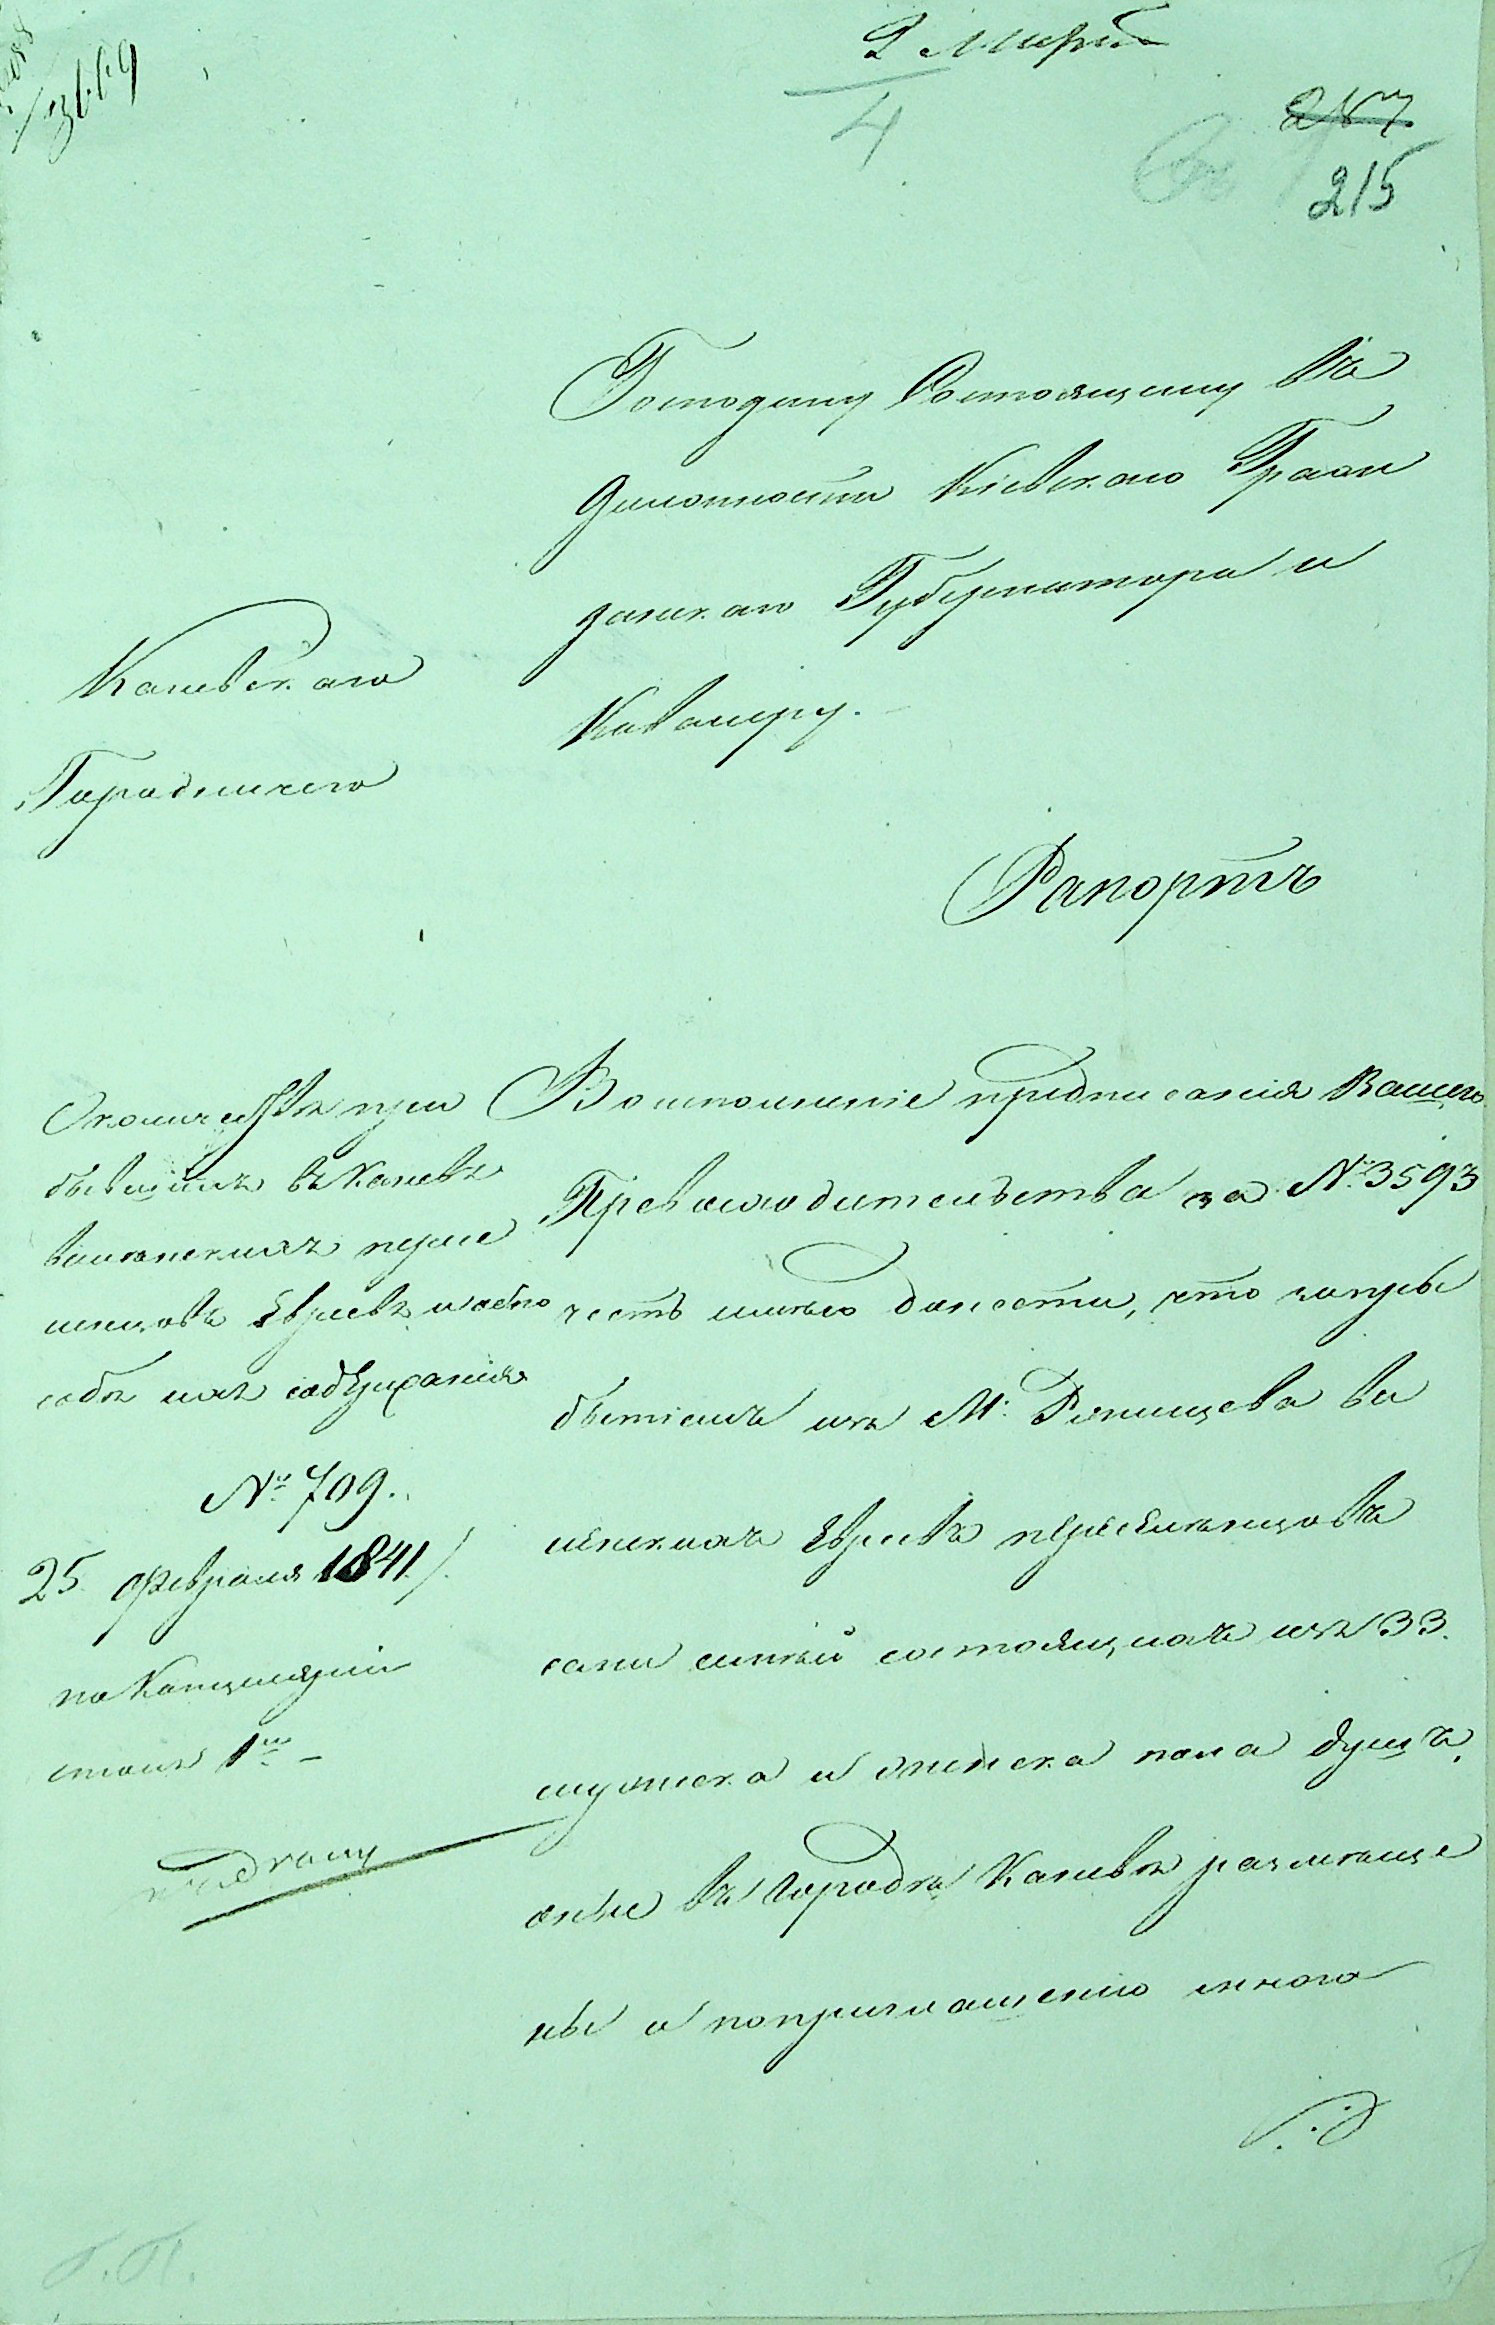 2 Марта
4
287
215
Господину Состоящему въ
должности Кіевскаго Граж
данскаго Губернатора и
Кавалеру.
Каневскаго
Городничего
Рапортъ
О количествѣ при
бывшихъ въ Каневъ
виленскихъ пересе
ленцовъ Евреевъ и о спо
собѣ ихъ содержанія
№ 709.
25 февраля 1841
по Канцеляріи
столъ 1й
Во исполненіе предписанія Вашего
Превосходительства за № 3593
честь имѣю донести, что за при
бытіемъ изъ М. Ржищева ви
ленскихъ Евреевъ переселенцовъ
семи семей состоящихъ изъ 33.
мужеска и женска пола душъ,
оные въ городѣ Каневѣ размѣще
ны и по приглашенію много